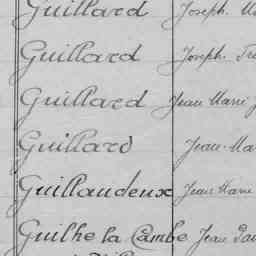 Guillard Joseph
Guillard Joseph
Guillard Jean Marie
Guillard Jean-Ma
Guillaudeux Jean Marie
Guilhe la Combe Jean